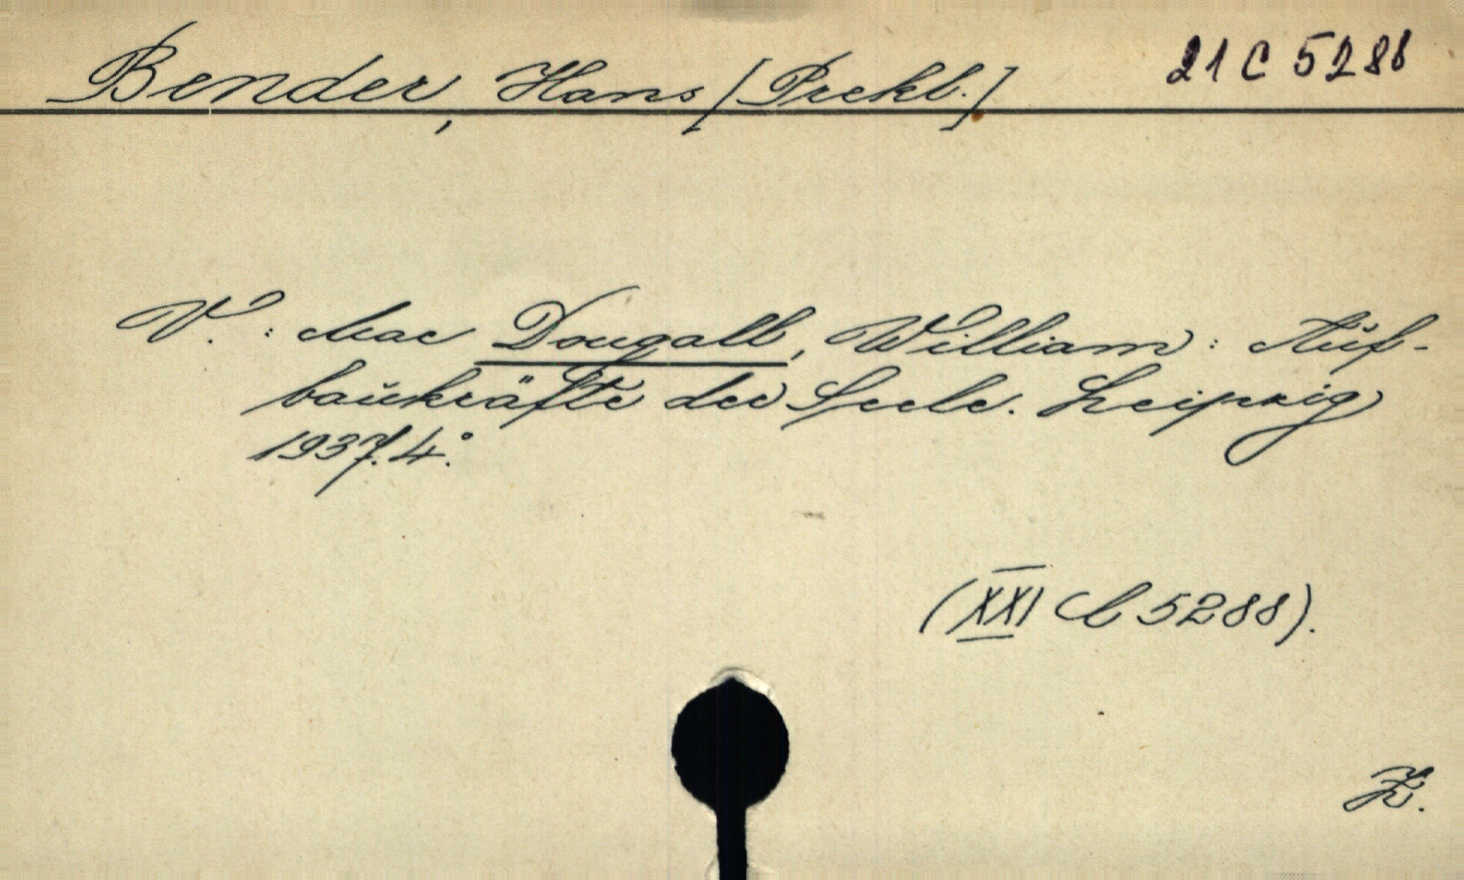 Bender, Hans [Prekl.]
21 C 5288
V. : Mac Dougall, William : Auf-
baukräfte der Seele. Leipzig
1937. 4°.
(XXI C 5288).